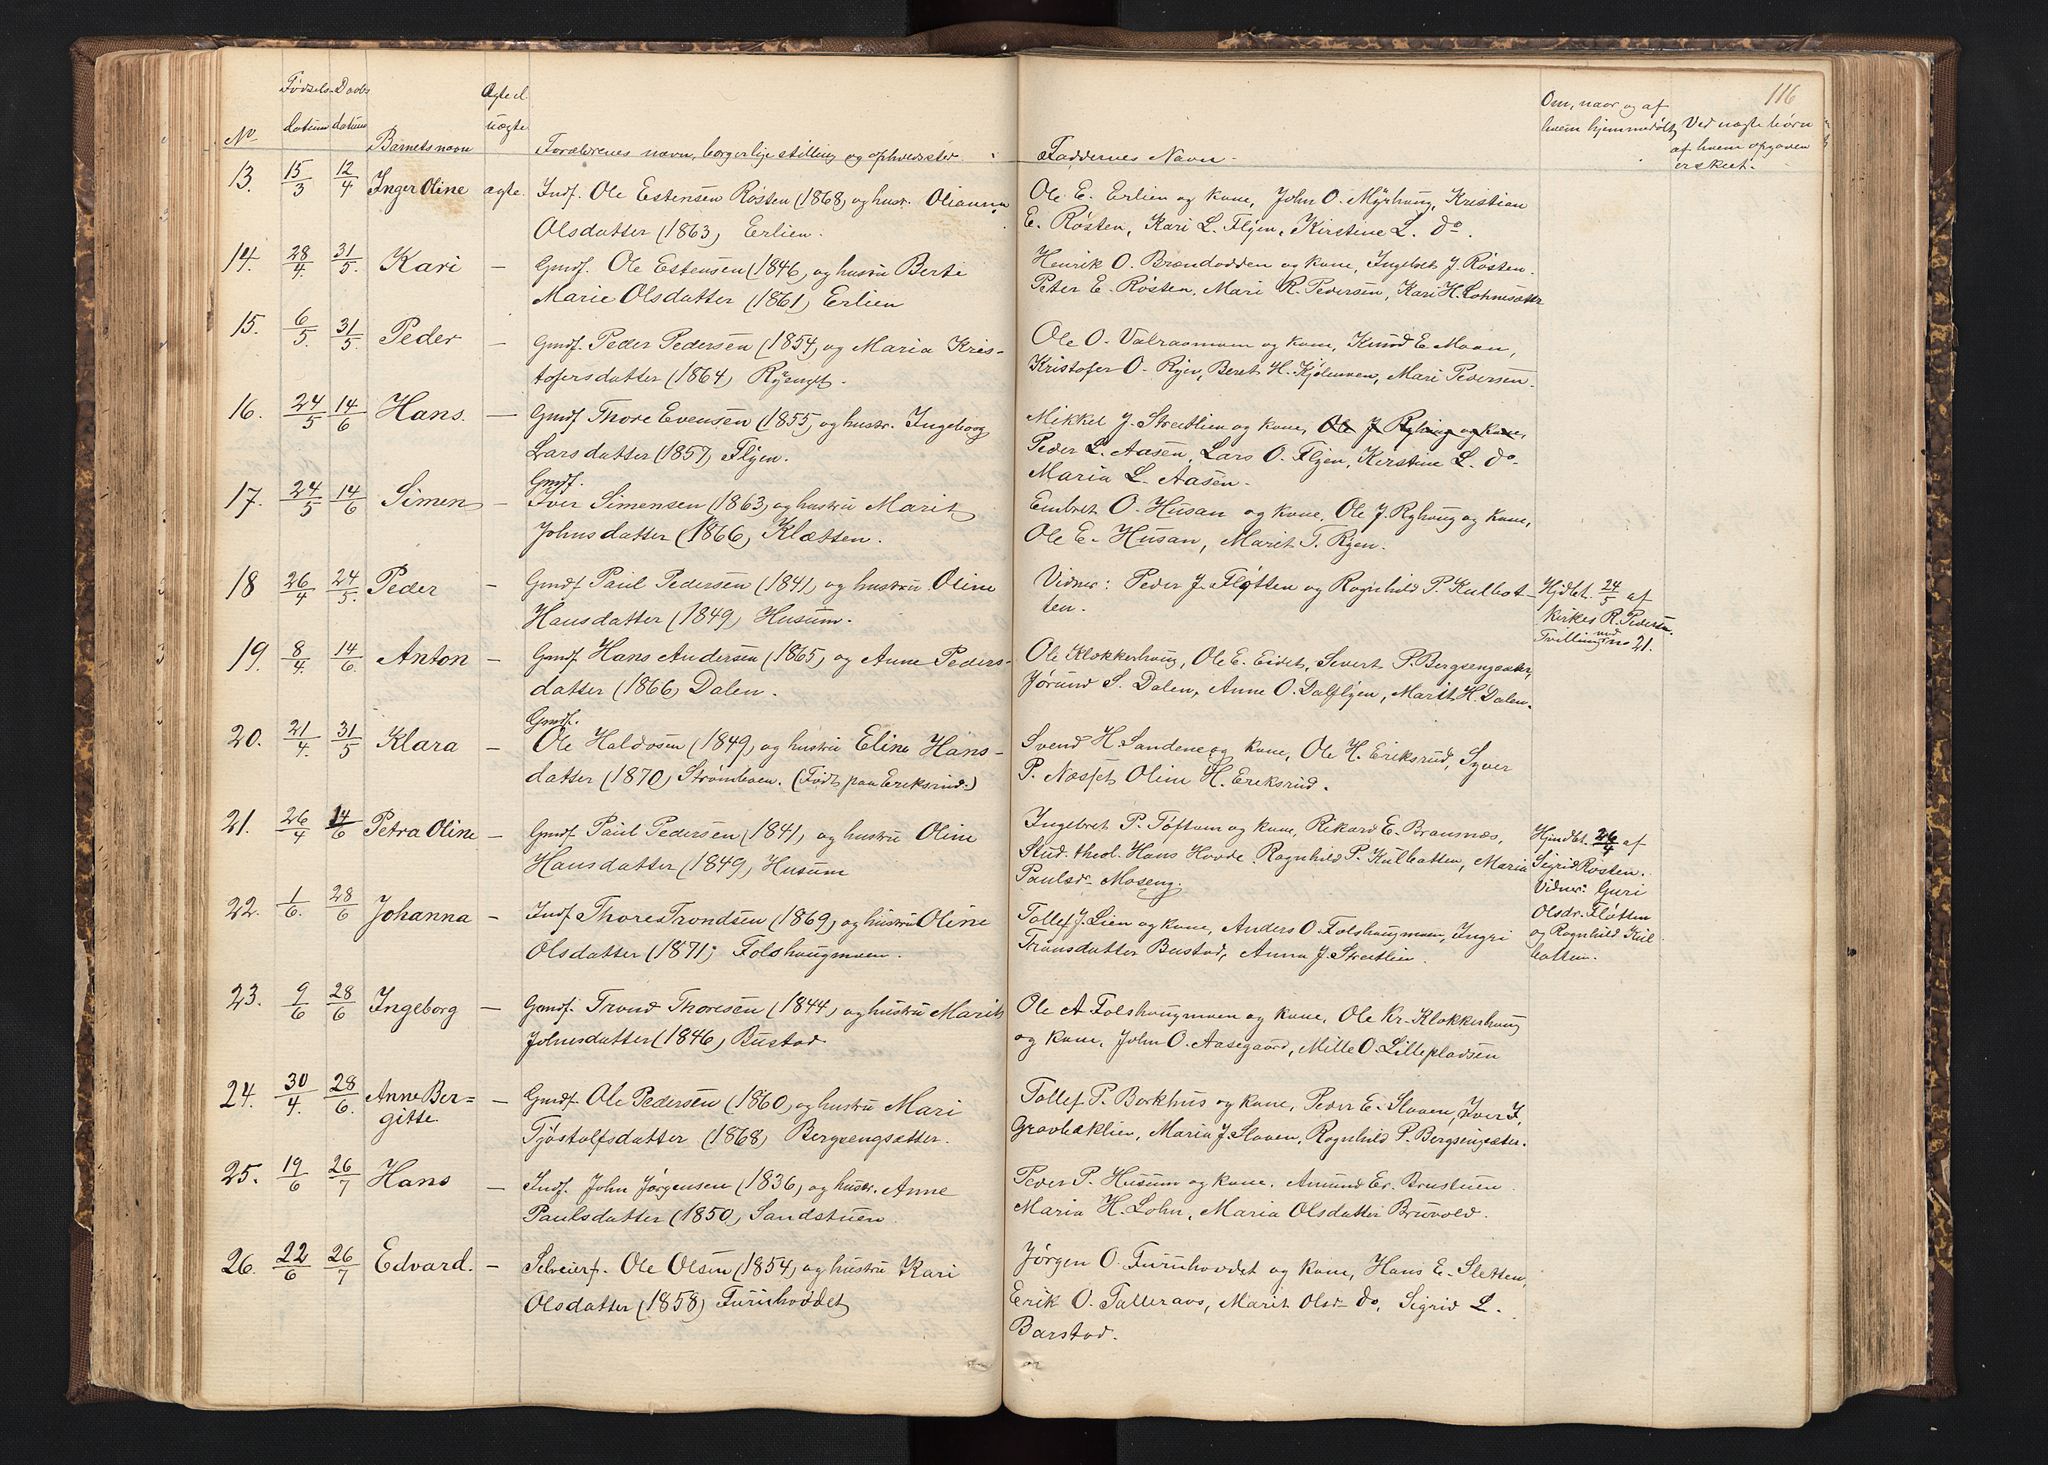 116
No
Fødsels datum
Daabs datum
Barnets navn
Ægte el. uægte
Forældrenes navn, borgerlige stilling og opholdssted.
Faddernes Navn.
Om, naar og af hvem hjemmedøbt
Ved uægte børn af hvem opgaven er skeet.
13. 15/3 12/4 Inger Oline ægte. Indf. Ole Estensen Røsten (1868) og hustr. Olianna
Olsdatter (1863) Erlien.
Ole E. Erlien og kone, John O. Myrhaug, Kristian
E. Røsten, Kari L. Flyen, Kirstine L. do.
14. 28/4 31/5. Kari — Gmdf. Ole Estensen (1846) og hustru Berte
Marie Olsdatter (1861) Erlien
Henrik O. Brændodden og kone, Ingebret J. Røsten.
Peter E. Røsten, Mari R. Pedersen, Kari H. Lohnsæter
15. 6/5. 31/5. Peder — Gmdf. Peder Pedersen (1854) og Maria Kris-
tofersdatter (1864) Ryenget.
Ole O. Valraamoen og kone, Knud E. Moan,
Kristofer O. Ryen, Beret H. Kjølmoen, Mari Pedersen.
16. 24/5 14/6 Hans. — Gmdf Thore Evensen (1855) og hustr. Ingeborg
Larsdatter (1857) Flyen.
Mikkel J. Streitlien og kone, Ole J. Ryhaug og kone,
Peder L. Aasen, Lars O. Flyen, Kirstine L. do.
Maria L. Aasen.
17. 24/5 14/6 Simen — Gmdf.
Iver Simensen (1863) og hustru Marit
Johnsdatter (1866) Klætten.
Embret O. Husan og kone, Ole J. Ryhaug og kone,
Ole E. Husan, Marit T. Ryen.
18 26/4 24/5. Peder — Gmdf. Paul Pedersen (1841) og hustru Oline
Hansdatter (1849) Husum.
Vidner: Peder J. Fløtten og Ragnhild P. Kulbot-
ten.
Hjdbt. 24/5 af
kirkes. R. Pedersen.
Tvilling med no 21.
19. 8/4. 14/6 Anton — Gmdf Hans Andersen (1865) og Anne Peders-
datter (1866) Dalen.
Ole Klokkerhaug, Ole E. Eidet, Sivert P. Bergsengsæter,
Jørund S. Dalen, Anne O. Dalflyen, Marit H. Dalen.
20. 21/4 31/5 Klara — Gmdf.
Ole Haldosen (1849) og hustru Eline Hans-
datter (1870) Strømboen. (Født paa Eriksrud.)
Svend H. Sandeneog kone, Ole H. Eriksrud, Syver
P. Næsset Oline H. Eriksrud.
21. 26/4 14/6 Petra Oline — Gmdf. Paul Pedersen (1841) og hustru Oline
Hansdatter (1849) Husum
Ingebret P. Toftum og kone, Rikard E. Bransnæs,
Stud. theol. Hans Hovde. Ragnhild P. Kulbotten, Maria
Paulsdr. Moseng.
Hjmdbt. 26/4 af
Sigrid Røsten.
Vidner: Guri
Olsdr. Fløtten
og Ragnhild Kul-
botten.
22. 1/6. 28/6 Johanna — Indf Thores Trondsen (1869) og hustru Oline
Olsdatter (1871) Folshaugmoen.
Tollef J. Lien og kone, Anders O. Folshaugmoen, Ingri
Tronsdatter Bustad, Anna J. Streitlien.
23. 9/6 28/6 Ingeborg — Gmdf. Trond Thoresen (1844) og hustru Marit
Johnsdatter (1846) Bustad
Ole A Folshaugmoen og kone, Ole Kr. Klokkerhaug
og kone, John O. Aasegaard, Mille O. Lillepladsen
24. 30/4. 28/6. Anne Ber=
gitte — Gmdf. Ole Pedersen (1860) og hustru Mari
Tjøstolfsdatter (1868) Bergsengsætter.
Tollef P. Borkhus og kone, Peder E. Sloven, Iver I.
Gravbæklien, Maria J. Sloven, Ragnhild P. Bergsengsæter.
25. 19/6 26/7 Hans — Indf. John Jørgensen (1836) og hustr. Anne
Paulsdatter (1850) Sandstuen.
Peder P. Husum og kone, Amund Er. Brustuen.
Maria H. Lohn, Maria Olsdatter Bruvold.
26. 22/6 26/7 Edvard. — Selveierf. Ole Olsen (1854) og hustru Kari
Olsdatter (1858) Furuhovdet
Jørgen O. Furuhovdet og kone, Hans E. Sletten,
Erik O. Talleraas, Marit Olsd. do, Sigrid L.
Barstad.